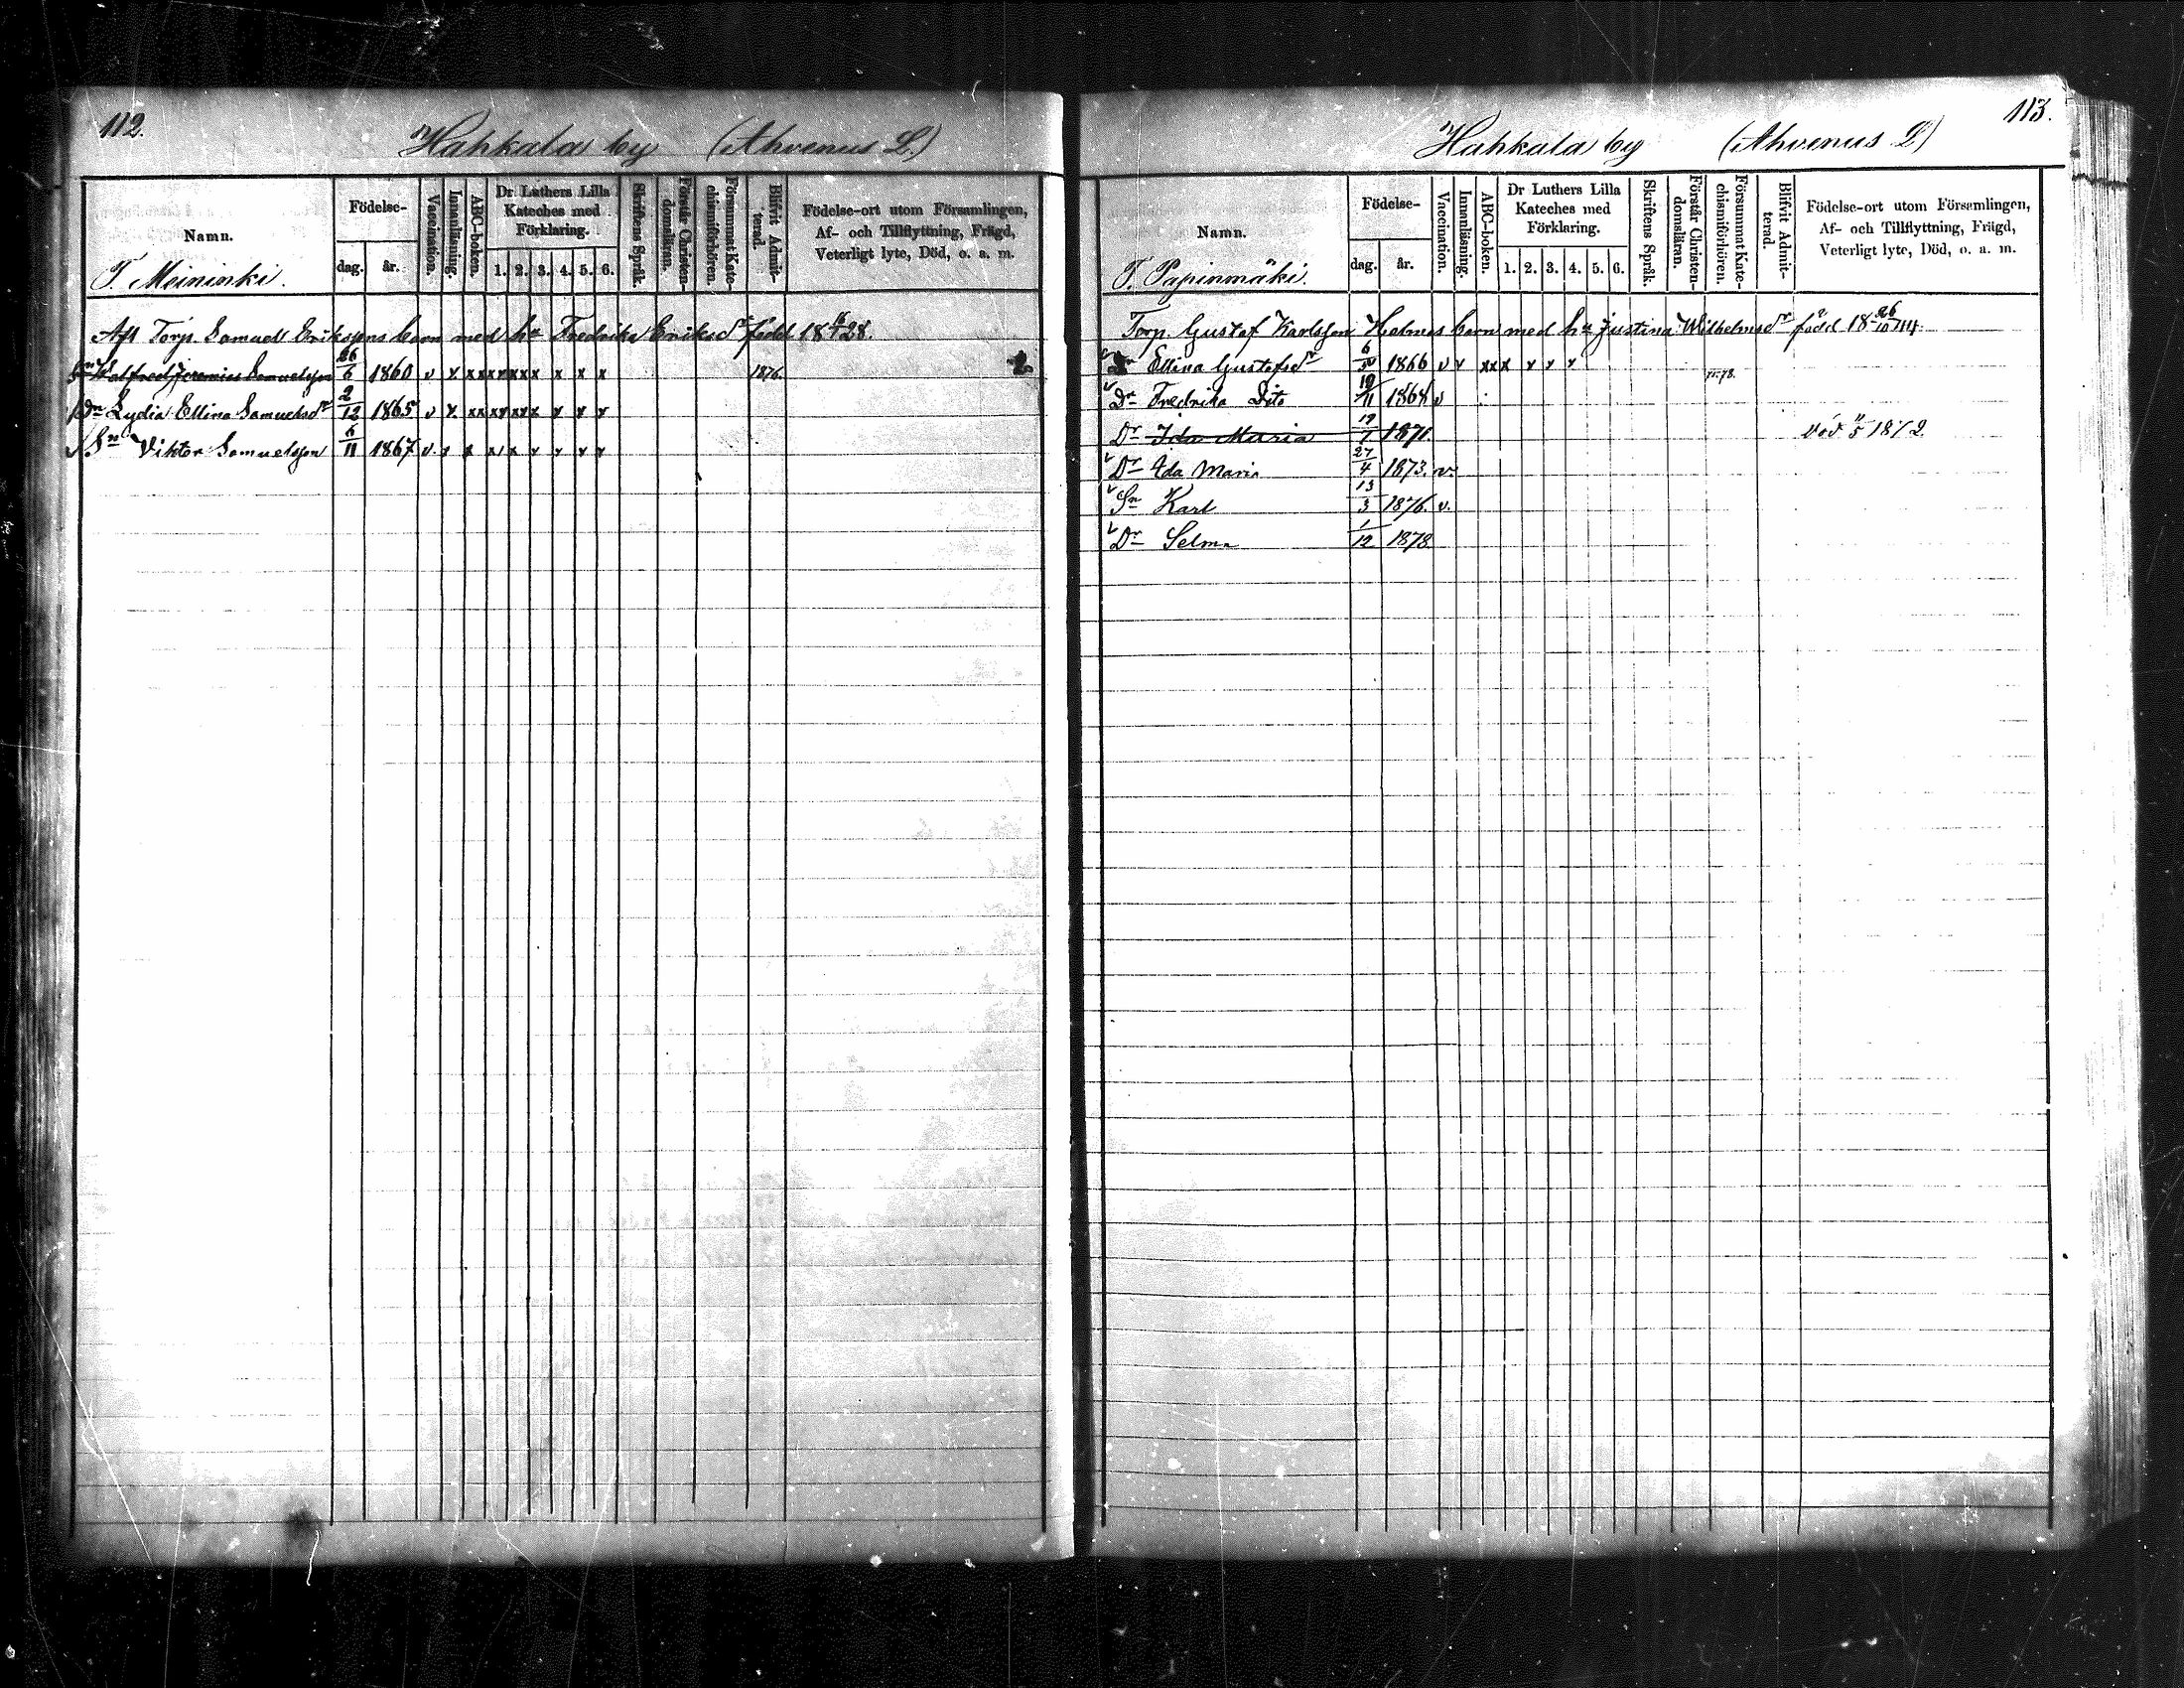 112.
Hahkala by (Ahvenus L.)
Namn.
Födelse-
dag.
år.
Vaccination.
Innanläsning.
ABC-boken.
Dr Luthers Lilla
Kateches med
Förklaring.
1. 2. 3. 4. 5. 6.
Skriftens Språk.
Förstår Christen-
domsläran.
Försummat Kate-
chismiförhören.
Blifvit Admit-
terad.
Födelse-ort utom Församlingen,
Af- och Tillflyttning, Frägd,
Veterligt lyte, Död, o. a. m.
T. Meininki.
Afl Torp. Samuel Erikssons barn med ha Fredrika Eriksdr född 18 28.
Sn Jeremias Samuelsson 26/6 1860 v x xx x x x x x x 1876.
Dr Lydia Ellina Samuelsdr 2/12 1865 v x xx x x x x x x
Sn Viktor Samuelsson 6/11 1867 v. x x x x x x x x
113.
Hahkala by (Ahvenus L)
Namn.
Födelse-
dag.
år.
Vaccination.
Innanläsning.
ABC-boken.
Dr Luthers Lilla
Kateches med
Förklaring.
1. 2. 3. 4. 5. 6.
Skriftens Språk.
Förstår Christen-
domsläran.
Försummat Kate-
chismiförhören.
Blifvit Admit-
terad.
Födelse-ort utom Församlingen,
Af- och Tillflyttning, Frägd,
Veterligt lyte, Död, o. a. m.
T. Papinmäki.
Torp. Gustaf Karlsson Holmes barn med ha Justina Wilhelmsdr född 18 26/10 44.
Ellina Gustafsdr 6/5 1866 v v xxx x x x x
Dr Fredrika Dito 19/11 1868 v
Dr Ida Maria 19/7 1871. död 5 1872
Dr Ida Maria 27/4 1873. v.
Sn Karl 13/3 1876. v.
Dr Selma 1/12 1878